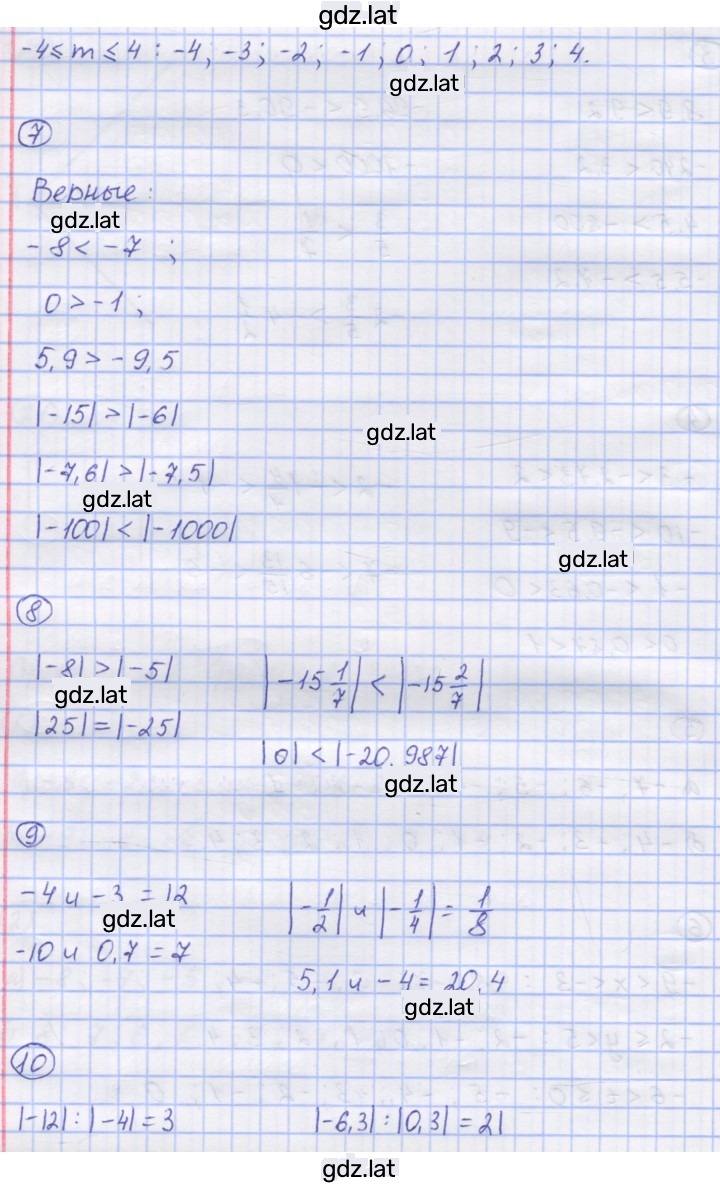 gdz.lat
-4 ≤ m ≤ 4 : -4; -3; -2; -1; 0; 1; 2; 3; 4.
gdz.lat
7
Верные:
gdz.lat
-8 < -7 ;
0 > -1 ;
5,9 > -9,5
|-15| > |-6|
gdz.lat
|-7,6| > |-7,5|
gdz.lat
|-100| < |-1000|
gdz.lat
8
|-8| > |-5| |-15 1/7| < |-15 2/7|
gdz.lat
|25| = |-25|
|0| < |-20.987|
gdz.lat
9
-4 и -3 = 12 |-1/2| и |-1/4| = 1/8
gdz.lat
-10 и 0,7 = 7
5,1 и -4 = 20,4
gdz.lat
10
|-12| : |-4| = 3 |-6,3| : |0,3| = 21
gdz.lat